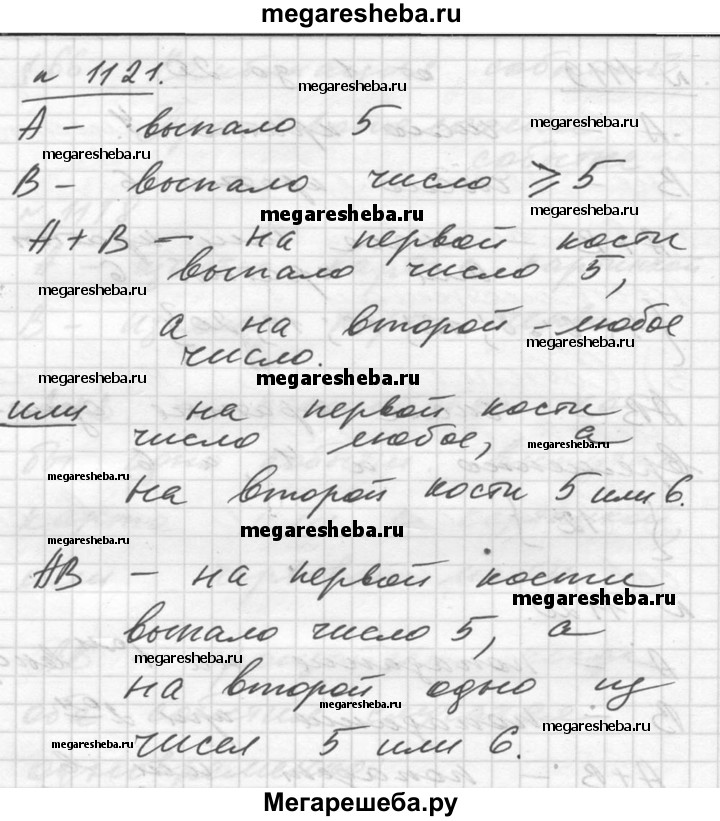 megaresheba.ru
n 1121.
megaresheba.ru
А - выпало 5
megaresheba.ru
megaresheba.ru
В - выпало число ⩾ 5
megaresheba.ru
А + В - на первой кости
выпало число 5,
megaresheba.ru
megaresheba.ru
а на второй - любое
megaresheba.ru
число.
megaresheba.ru
megaresheba.ru
или на первой кости
число любое, а
megaresheba.ru
megaresheba.ru
на второй кости 5 или 6.
megaresheba.ru
megaresheba.ru
АВ - на первой кости
megaresheba.ru
выпало число 5, а
megaresheba.ru
на второй одно из
megaresheba.ru
megaresheba.ru
megaresheba.ru
чисел 5 или 6.
Мегарешеба.ру